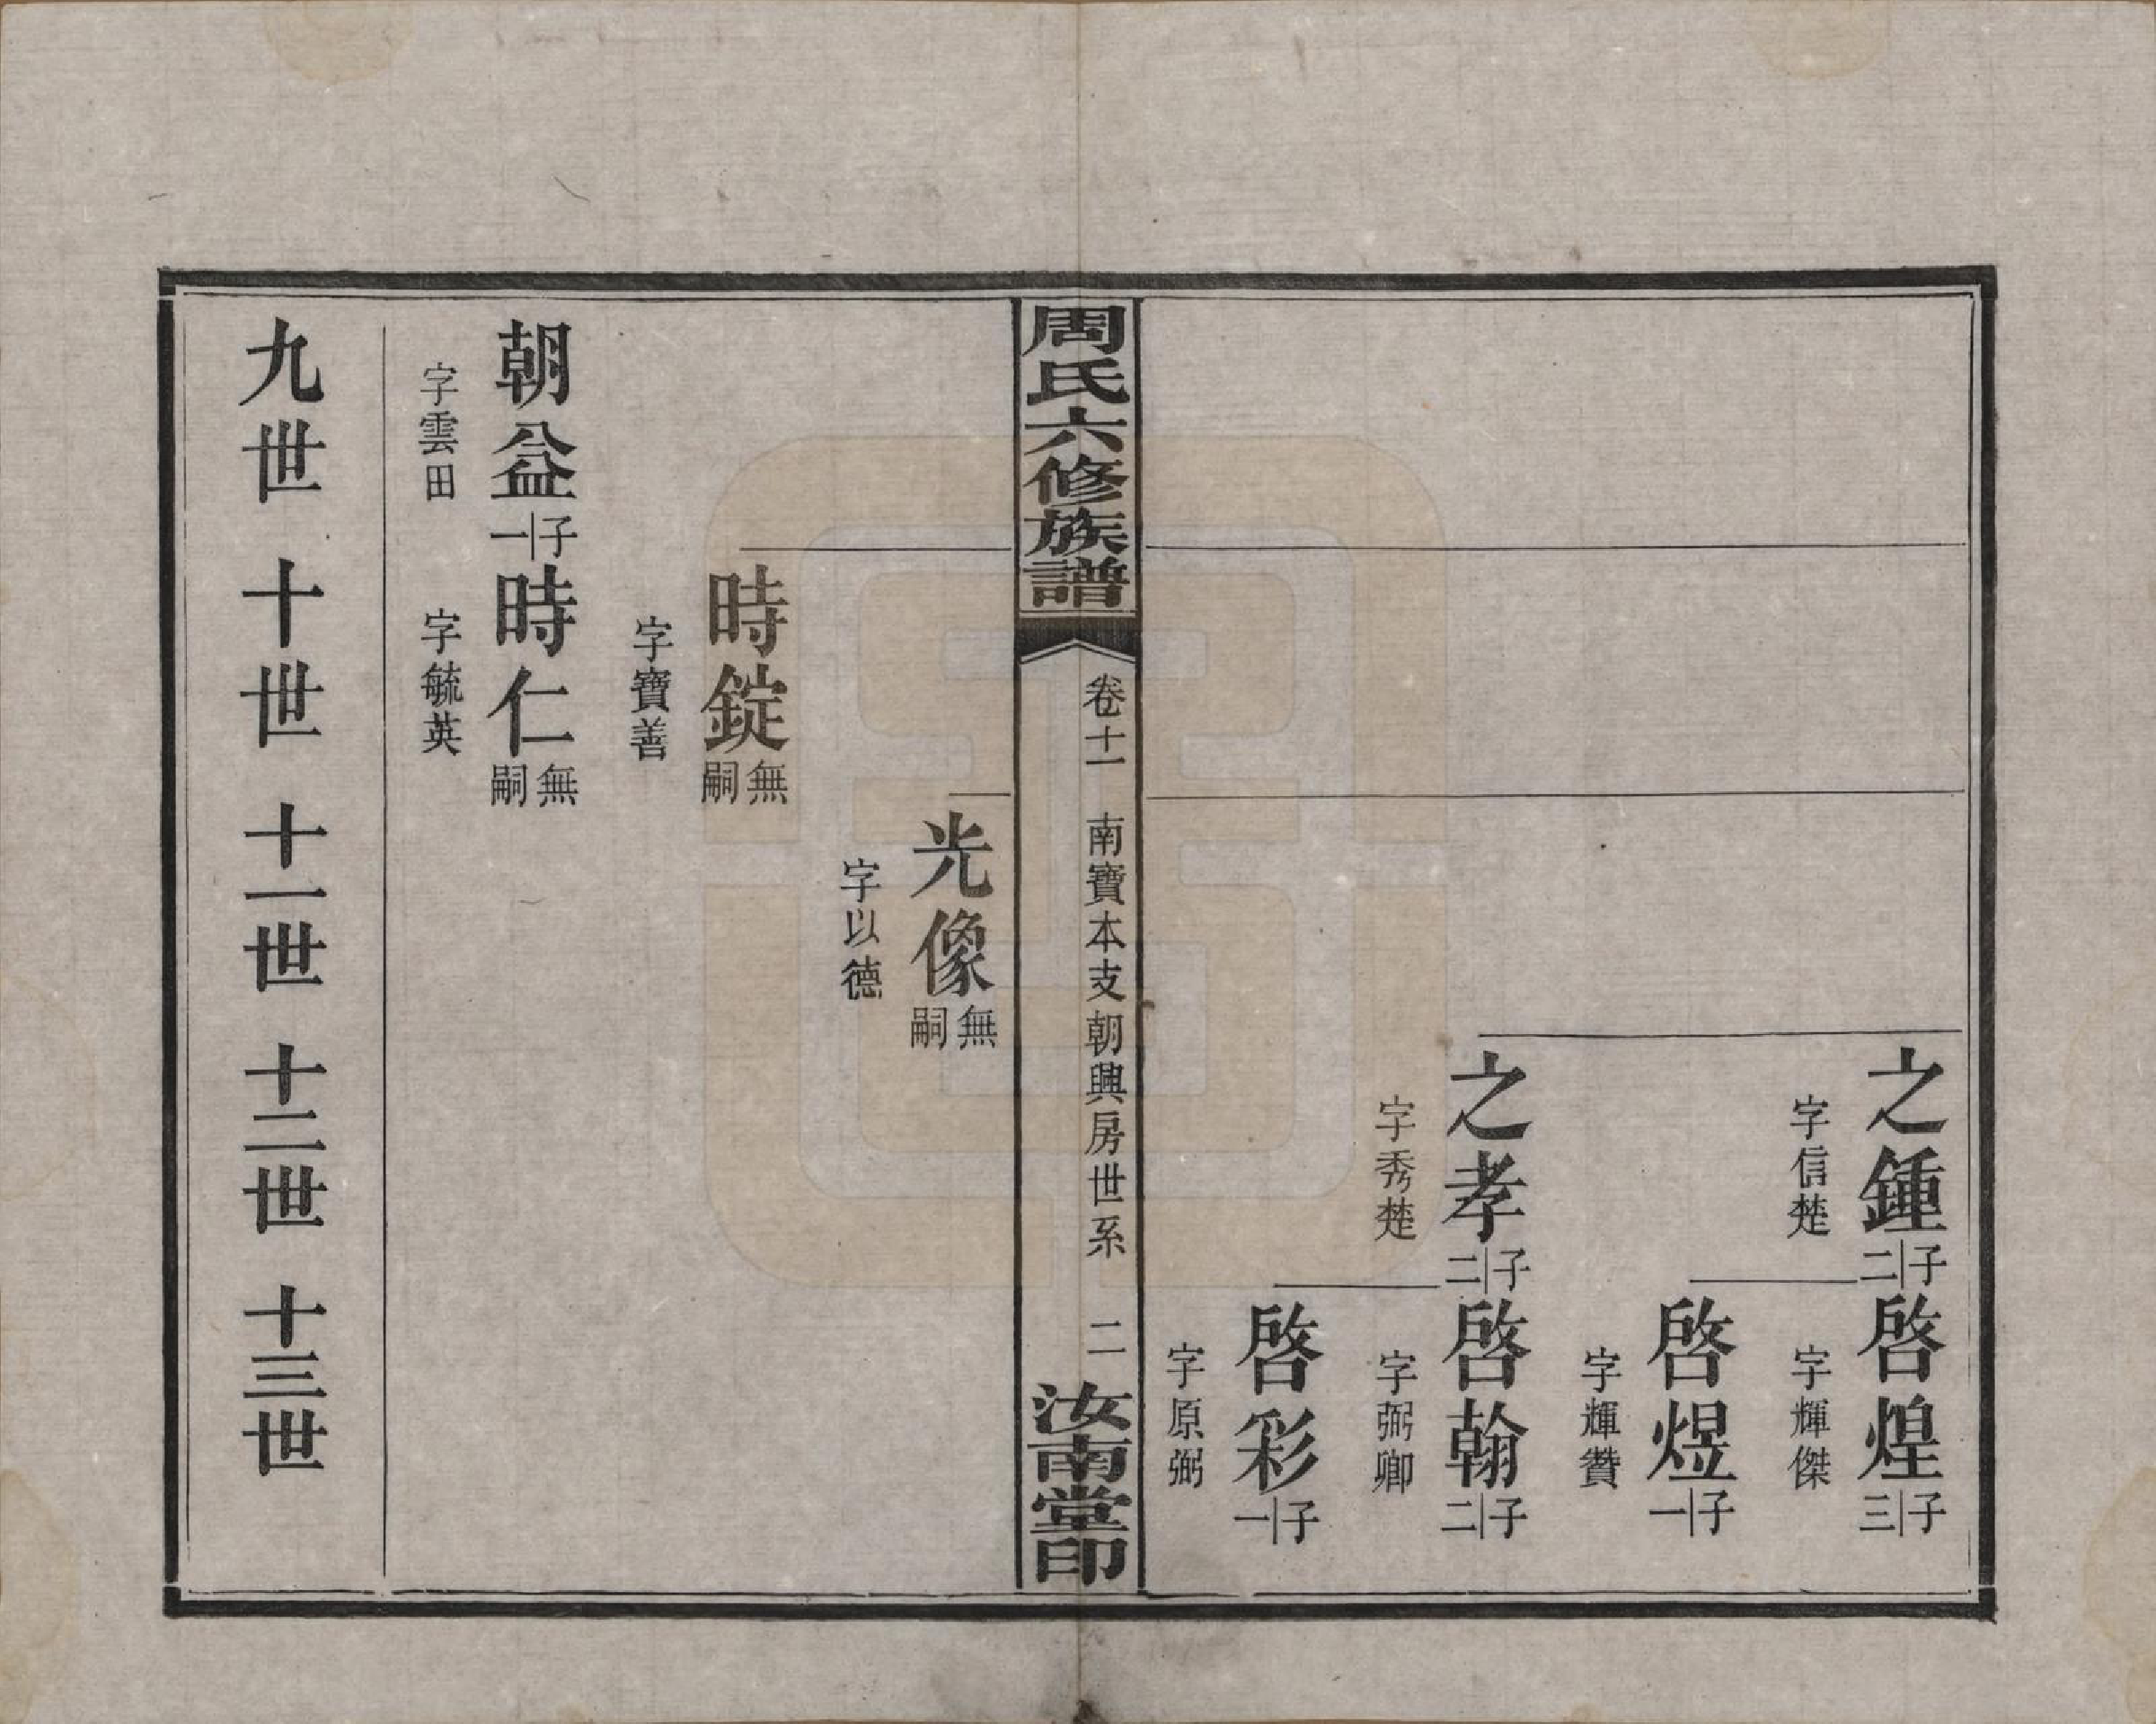 之鍾 子二
字信楚
啓煌 子三
字輝傑
啓煜 子一
字輝贊
之孝 子二
字秀楚
啓翰 子二
字弼卿
啓彩 子一
字原弼
周氏六修族譜
卷十一 南寶本支朝興房世系 二
汝南堂印
光像 無嗣
字以德
時錠 無嗣
字寶善
朝益 子一
字雲田
時仁 無嗣
字毓英
九世 十世 十一世 十二世 十三世